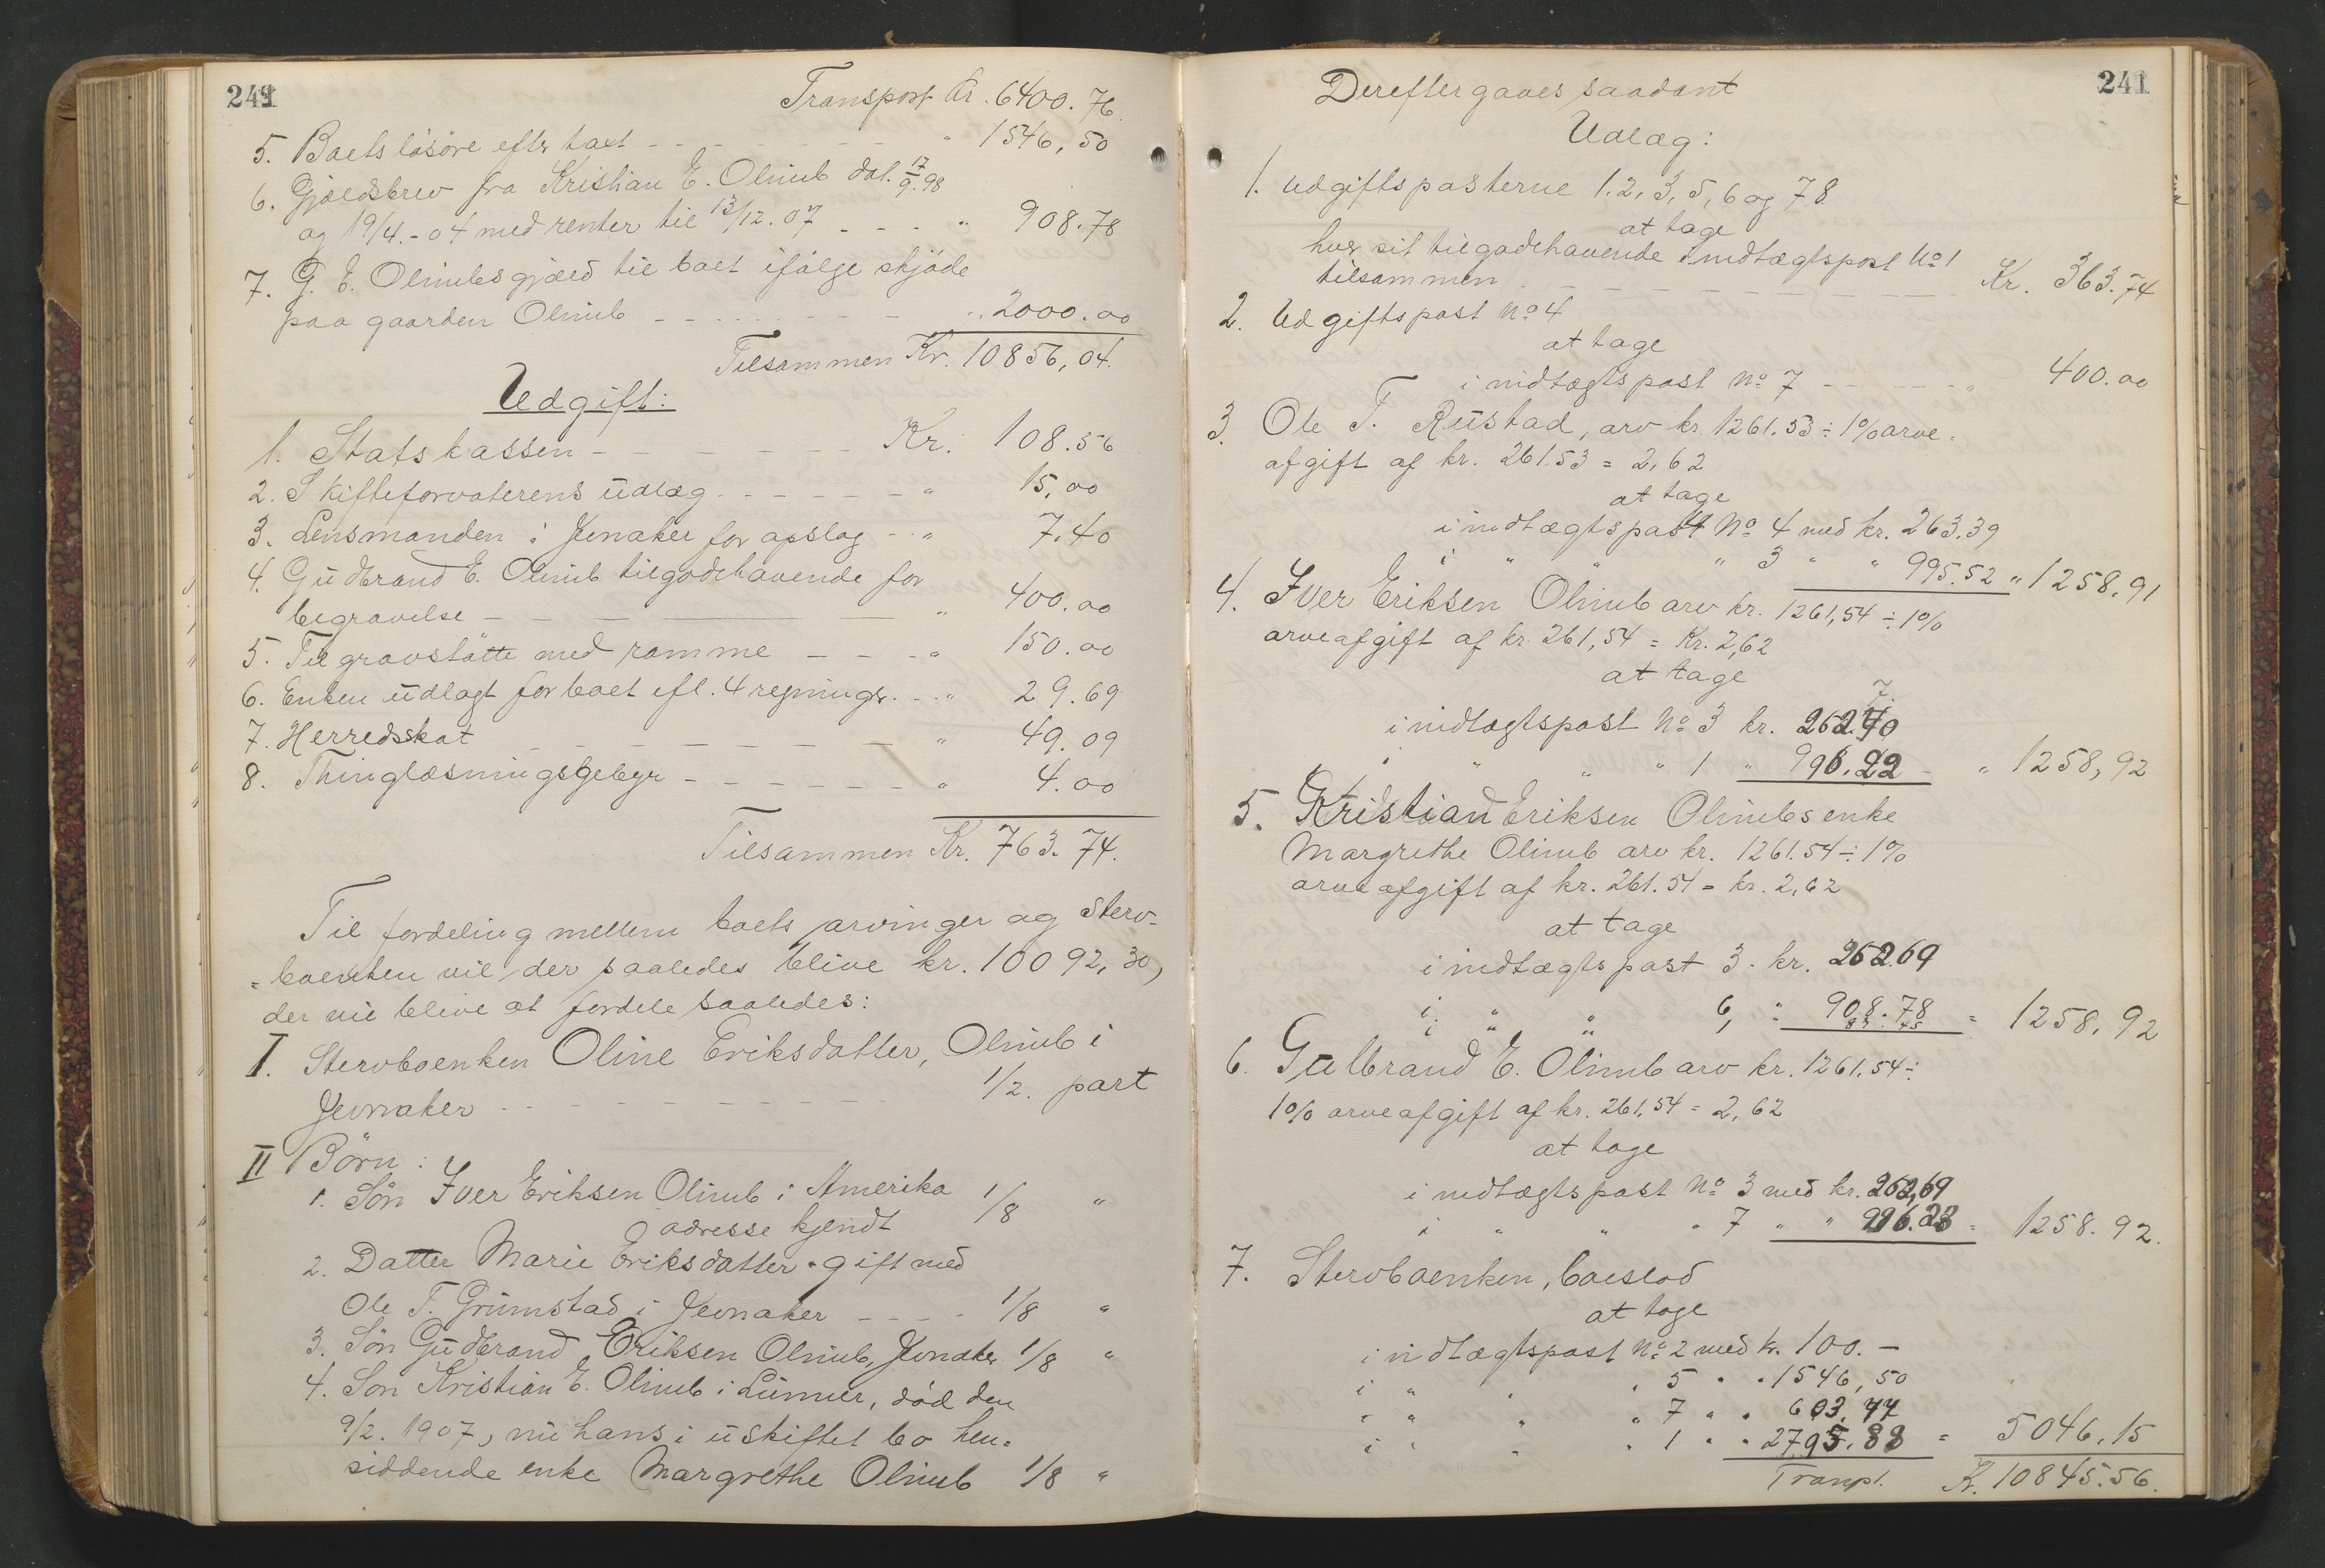 241
Transport Kr. 6400.76.
5. Boets løsøre efter taxt - - - - - - " 1546,50
6. Gjældsbrev fra Kristian E. Olimb dat. 17/9.98
og 19/4.-04 med renter til 13/12.07 - - - " 908.78
7. G. E. Olimbs gjæld til boet ifølge skjøde
paa gaarden Olimb - - - - - - - " 2000.00
Tilsammen Kr. 10856,04.
Udgift:
1. Statskassen - - - - - - - Kr. 108.56
2. Skifteforvalterens udlæg - - - - - - " 15,00
3. Lensmanden i Jevnaker for opslag - - " 7.40
4. Gudbrand E. Olimb tilgodehavende for
begravelse - - - - " 400.00
5. Til gravstøtte med ramme - - - " 150.00
6. Enken udlagt for boet efl. 4 regninger - - " 29.69
7. Herredsskat - - - - - - - " 49.09
8. Thinglæsningsgebyr - - - - - - " 4.00
Tilsammen Kr. 763.74.
Til fordeling mellem boets arvinger og sterv-
=boenken vil der saaledes blive kr. 10092,30,
der vil blive at fordele saaledes:
I. Stervboenken Oline Eriksdatter, Olimb i
Jevnaker - - - - - - - - - 1/2. part
II Börn:
1. Sön Iver Eriksen Olimb i Amerika 1/8 "
adresse kjendt
2. Datter Marie Eriksdatter gift med
Ole T. Grimstad i Jevnaker - - - - 1/8 "
3. Sön Gudbrand Eriksen Olimb, Jevnaker 1/8 "
4. Sön Kristian E. Olimb i Lunner, död den
9/2. 1907, nu hans i uskiftet bo hen=
siddende enke Margrethe Olimb 1/8 "
241
Derefter gaves saadant
Udlæg:
1. Udgiftsposterne 1.2,3,5,6 og 7 8
at tage
hver sit tilgodehavende i indtægtspost No 1
tilsammen - - - - - - - - - Kr. 363.74
2. Udgiftspost No 4
at tage
i indtægtspost No 7 - - - - - - " 400.00
3. Ole T. Rustad, arv kr. 1261.53 ÷ 1% arve=
afgift af kr. 261.53 = 2,62
at tage
i indtægtspost No 4 med kr. 263.39
i " " " 3 " " 995.52 " 1258.91
4. Iver Eriksen Olimb arv kr. 1261,54 ÷ 1%
arveafgift af kr. 261,54 = Kr. 2,62
at tage
i indtægtspost No 3 kr. 262.70
i " " " 1 " 996.22 - " 1258,92
5. Kristian Eriksen Olimbs enke
Margrethe Olimb arv kr. 1261.54 ÷ 1%
arveafgift af kr. 261.54 = kr. 2,62
at tage
i indtægtspost 3. kr. 262.69
i " " 6, " 908.78
i " " 87.45 = 1258.92
6. Gulbrand E. Olimb arv kr. 1261.54 ÷
1% arveafgift af kr. 261,54 = 2,62
at tage
i indtægtspost No 3 med kr. 262,69
i " " " 7 " " 996.23 = 1258.92.
7. Stervboenken, boeslod
at tage
i indtægtspost No 2 med kr. 100.-
i " " " 5 " " 1546,50
" " " " 7 " " 603,77
i " " " 1 " " 2795.88 = 5046,15
Transpt. Kr. 10845.56.